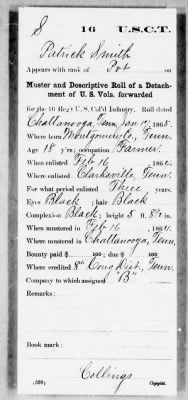 S 16 U.S.C.T.
Patrick Smith
Appears with rank of Pvt on
Muster and Descriptive Roll of a Detach-
ment of U. S. Vols. forwarded
for the 16 Reg't U. S. Col'd Infantry. Roll dated
Chattanooga, Tenn, Jan 17, 1865.
Where born Montgomery Co., Tenn.
Age 18 y'rs; occupation Farmer.
When enlisted Feb 16, 1864.
Where enlisted Clarksville, Tenn.
For what period enlisted Three years.
Eyes Black; hair Black
Complexion Black; height 5 ft. 8½ in.
When mustered in Feb 16, 1864.
Where mustered in Chattanooga, Tenn.
Bounty paid $ 100; due $ 100
Where credited 8" Cong Dist, Tenn.
Company to which assigned "B"
Remarks:
Book mark:
Collings
(339) Copyist.